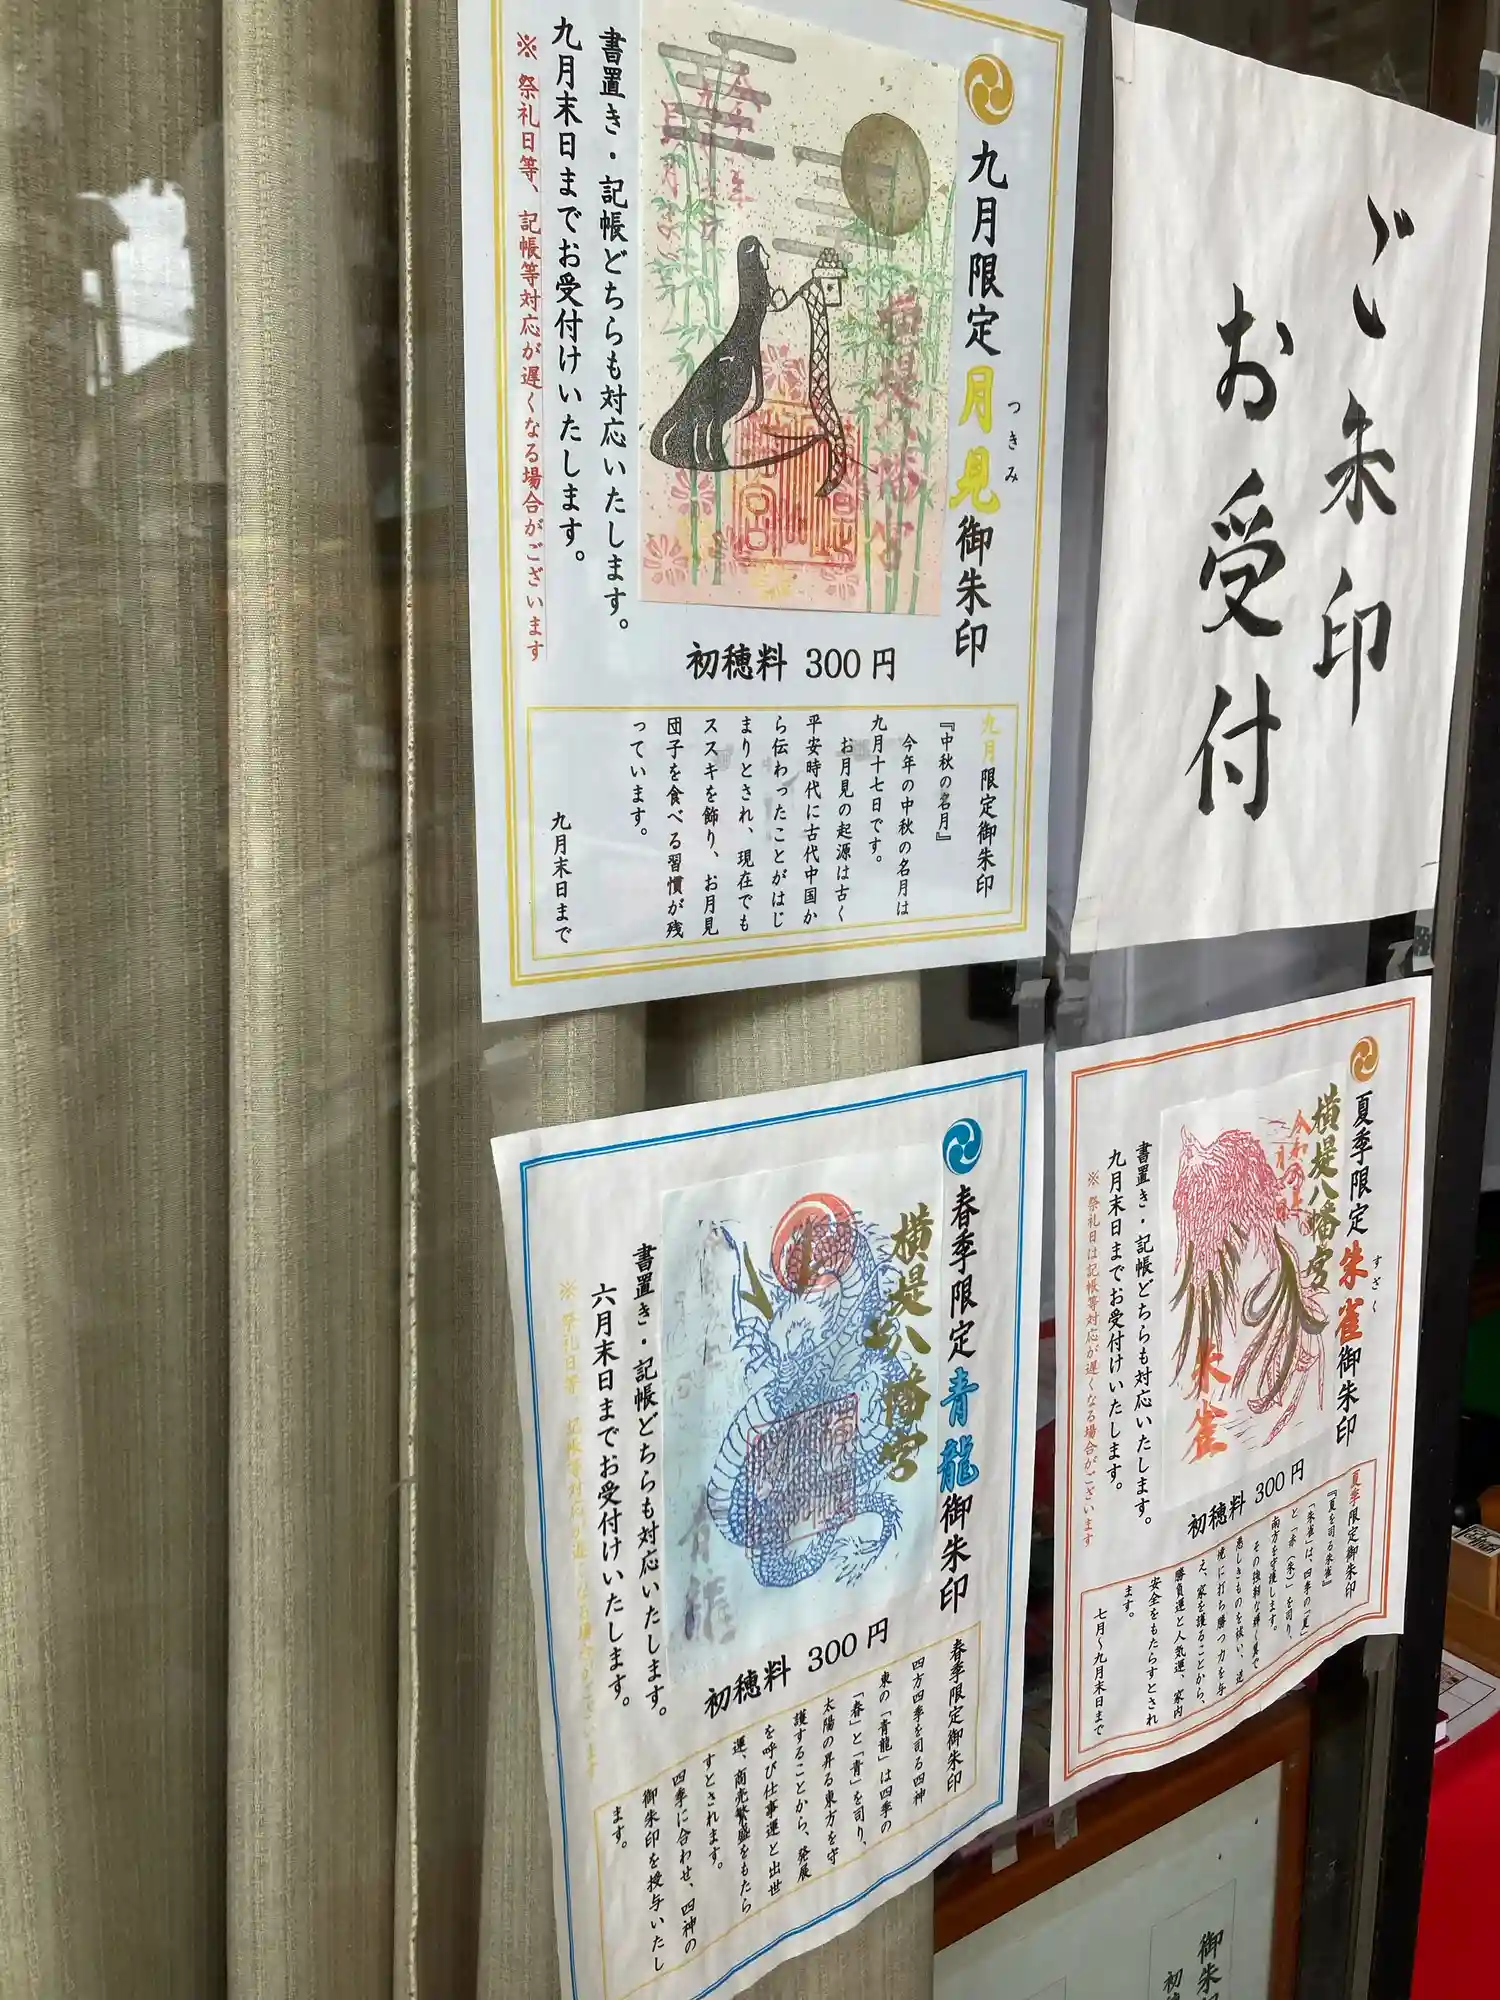 ご朱印
お受付
九月限定月見御朱印
つきみ
書置き・記帳どちらも対応いたします。
九月末日までお受付けいたします。
※ 祭礼日等、記帳等対応が遅くなる場合がございます
初穂料 300円
九月限定御朱印
『中秋の名月』
今年の中秋の名月は
九月十七日です。
お月見の起源は古く
平安時代に古代中国か
ら伝わったことがはじ
まりとされ、現在でも
ススキを飾り、お月見
団子を食べる習慣が残
っています。
九月末日まで
夏季限定朱雀御朱印
すざく
横堤八幡宮
朱雀
書置き・記帳どちらも対応いたします。
九月末日までお受付けいたします。
※ 祭礼日は記帳等対応が遅くなる場合がございます
初穂料 300円
夏季限定御朱印
『夏を司る朱雀』
「朱雀」は、四季の「夏」
と「赤（朱）」を司り、
南方を守護します。
え、家を護ることから、
勝負運と人気運、家内
安全をもたらすとされ
ます。
七月～九月末日まで
春季限定青龍御朱印
横堤八幡宮
青龍
書置き・記帳どちらも対応いたします。
六月末日までお受付けいたします。
※ 祭礼日等、記帳等対応が遅くなる場合がございます
初穂料 300円
春季限定御朱印
四方四季を司る四神
東の「青龍」は四季の
「春」と「青」を司り、
太陽の昇る東方を守
護することから、発展
を呼び仕事運と出世
運、商売繁盛をもたら
すとされます。
四季に合わせ、四神の
御朱印を授与いたし
ます。